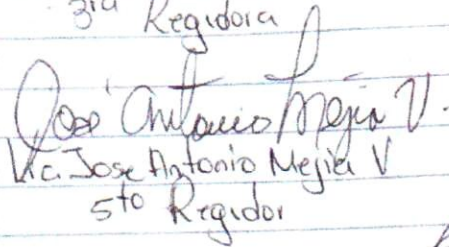 3ra Regidora
José Antonio Mejia V.
Lic. Jose Antonio Mejia V
5to Regidor